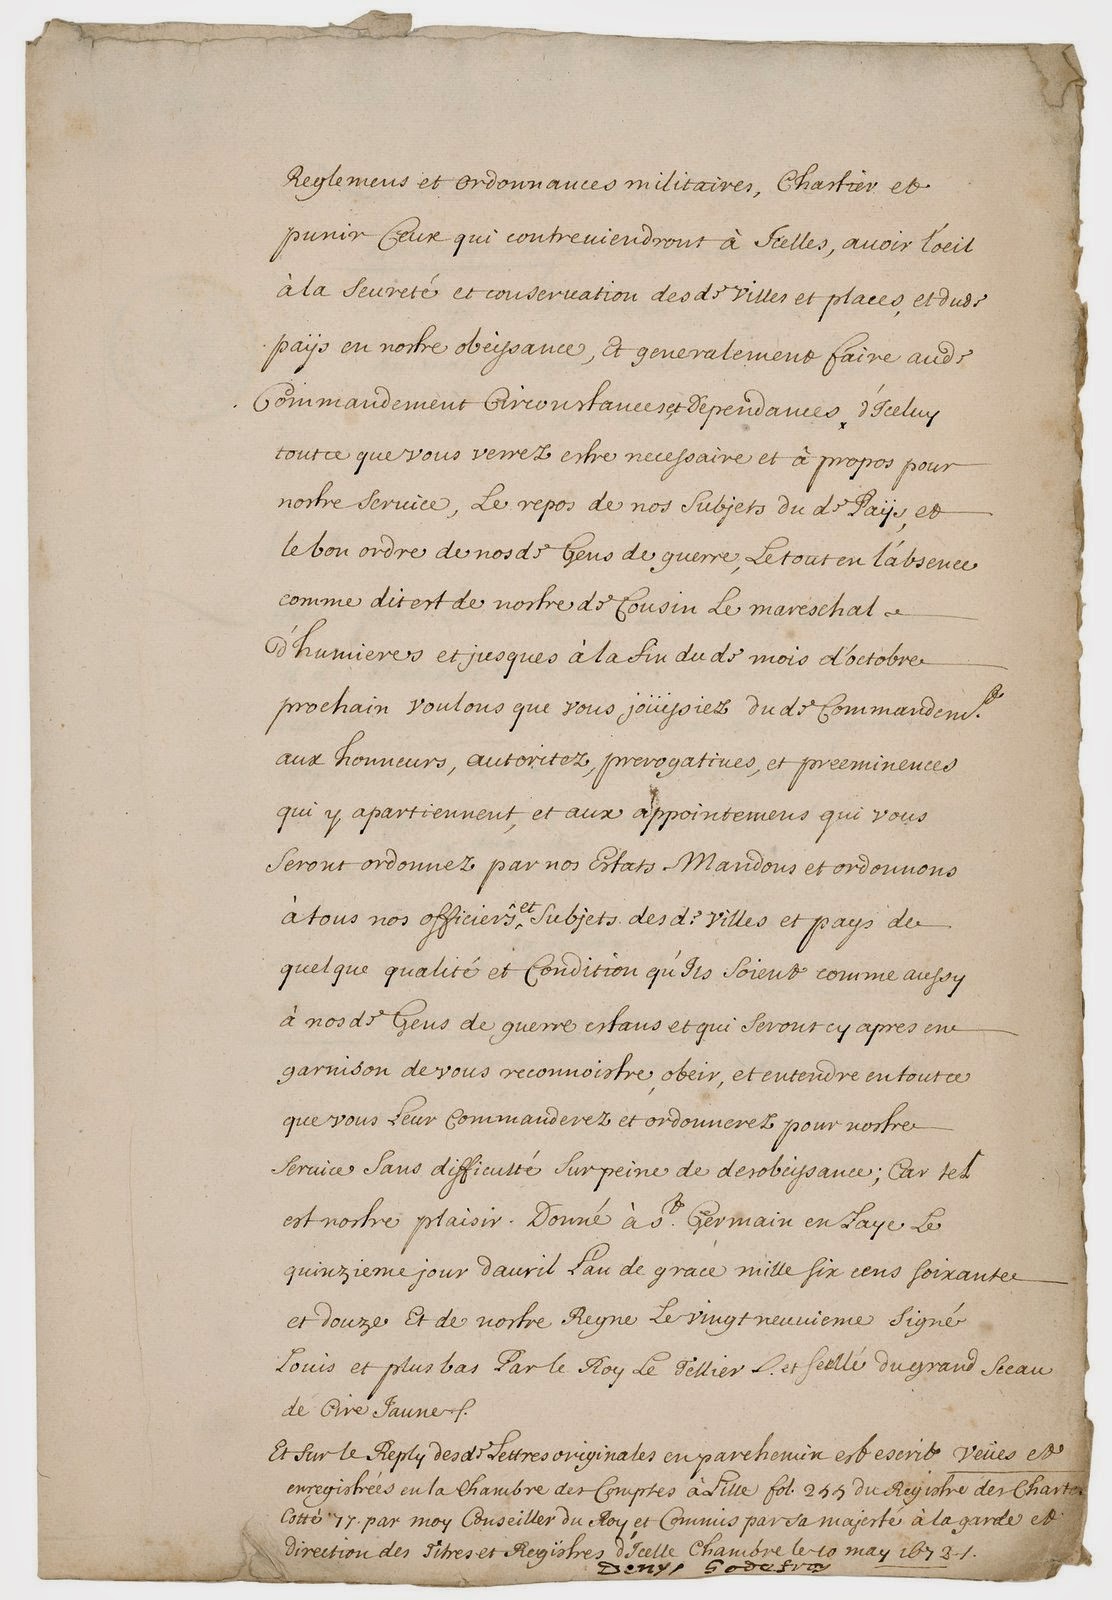 Reglemens et ordonnances militaires, Chastier et
punir Ceux qui contreviendront à Icelles, avoir l'oeil
à la seureté et conservation desd.s villes et places, et dud.s
païjs en nostre obeissance, et generalement faire aud.s
Commandement Circonstances et Dependances d'Iceluy
tout ce que vous verrez estre necessaire et à propos pour
nostre service, Le repos de nos subjets du d.s Païjs, et
le bon ordre de nosd.s Gens de guerre, Le tout en l'absence
comme dit est de nostre d.s Cousin Le mareschal
d'humieres et jusques à la fin dud.s mois d'octobre
prochain voulons que vous joüissiez dud.s Commandem.t
aux honneurs, autoritez, prerogatives, et preeminences
qui y apartiennent, et aux appointemens qui vous
seront ordonnez par nos Estats. Mandons et ordonnons
à tous nos officiers et subjets desd.s villes et pays de
quelque qualité et Condition qu'Ils soient comme aussy
à nosd.s Gens de guerre estans et qui seront cy apres en
garnison de vous reconnoistre, obeir, et entendre en tout ce
que vous Leur Commanderez et ordonnerez pour nostre
service sans difficulté sur peine de desobeissance; Car tel
est nostre plaisir. Donné à S.t Germain en Laye Le
quinzieme jour d'avril L'an de grace mille six cens soixante
et douze Et de nostre Regne Le vingt neuvieme signé
Louis et plus bas Par le Roy Le Tellier et seellé du grand sceau
de Cire Jaune
Et sur le Reply desd.s Lettres originales en parchemin est escrit veües et
enregistrées en la Chambre des Comptes à Lille fol. 255 du Registre des Chartes
Cotté 17. par moy Conseiller du Roy et Commis par sa majesté à la garde et
direction des Titres et Registres d'Icelle Chambre le 10 may 1673
Denys Godefroy